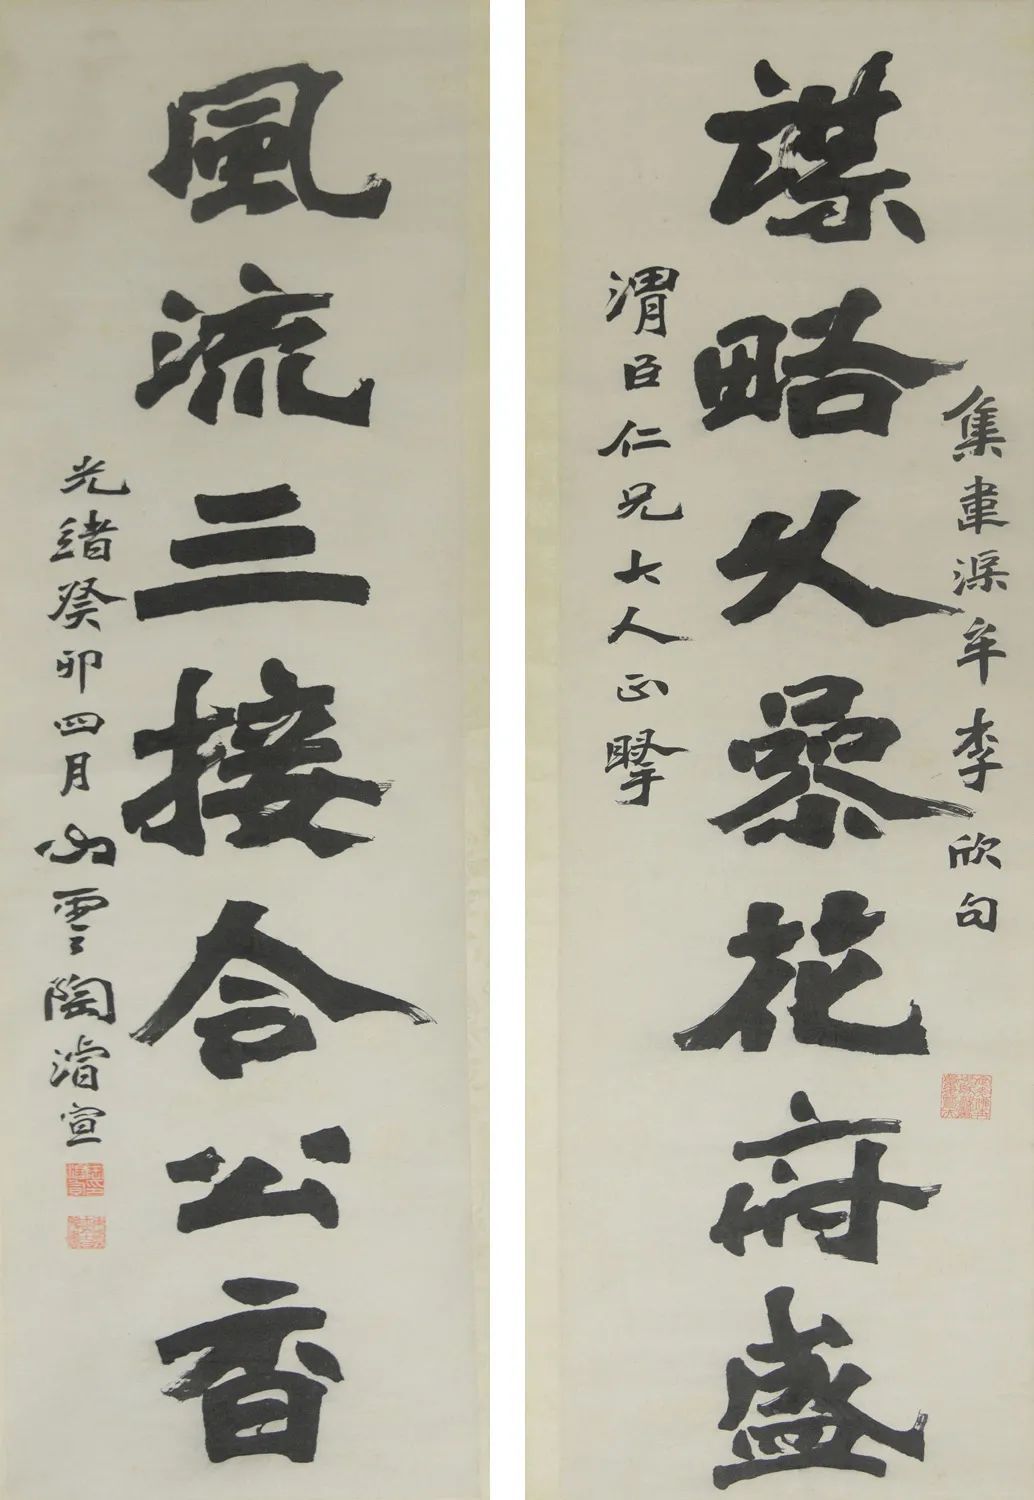 集韋渠牟李欣句
謀略久參花府盛
渭臣仁兄大人正
風流三接令公香
光緒癸卯四月心雲陶濬宣